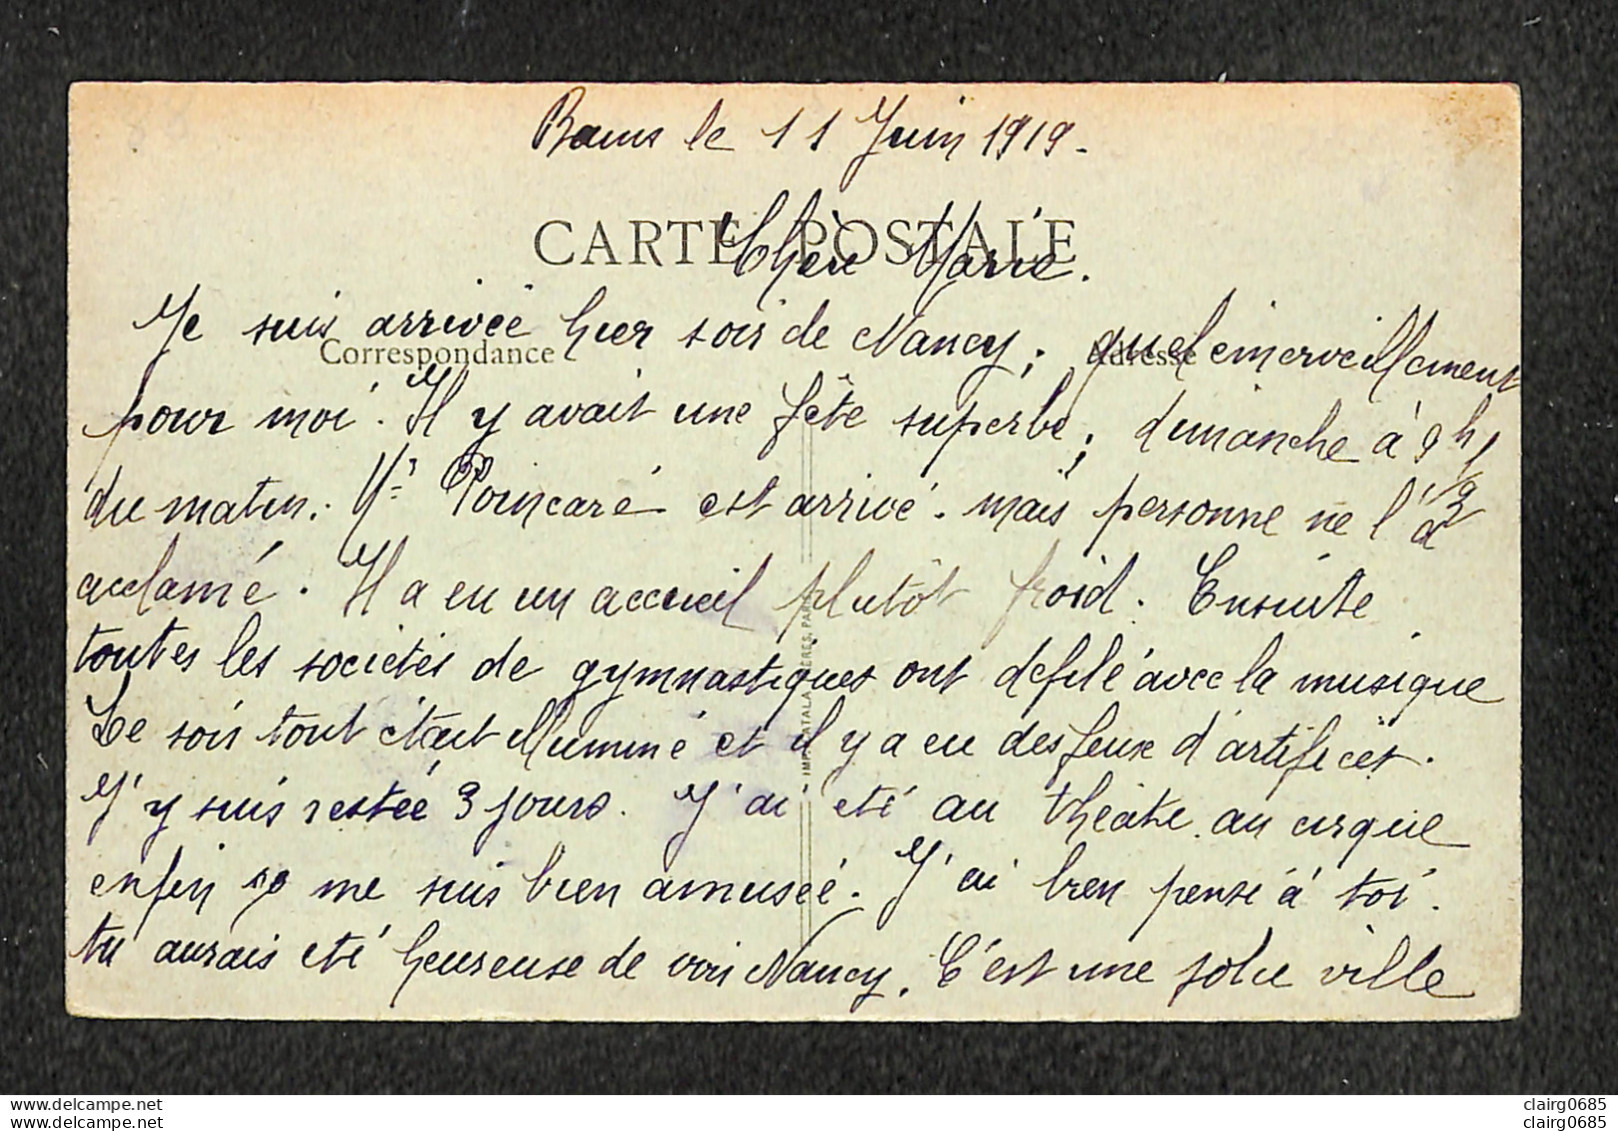 Bains le 11 Juin 1919.
CARTE POSTALE
Chère Marie.
Je suis arrivée hier soir de Nancy; quel émerveillement
Correspondance
Adresse
pour moi. Il y avait une fête superbe; dimanche à 9h 1/2
du matin. Mr Poincaré est arrivé. mais personne ne l'a
acclamé. Il a eu un accueil plutôt froid. Ensuite
toutes les sociétés de gymnastiques ont défilé avec la musique
Le soir tout était illuminé et il y a eu des feux d'artifices.
J'y suis restée 3 jours. J'ai été au théâtre au cirque
enfin je me suis bien amusée. J'ai bien pensé à toi.
tu aurais été heureuse de voir Nancy. C'est une jolie ville
clairg0685
clairg0685
clairg0685
clairg0685